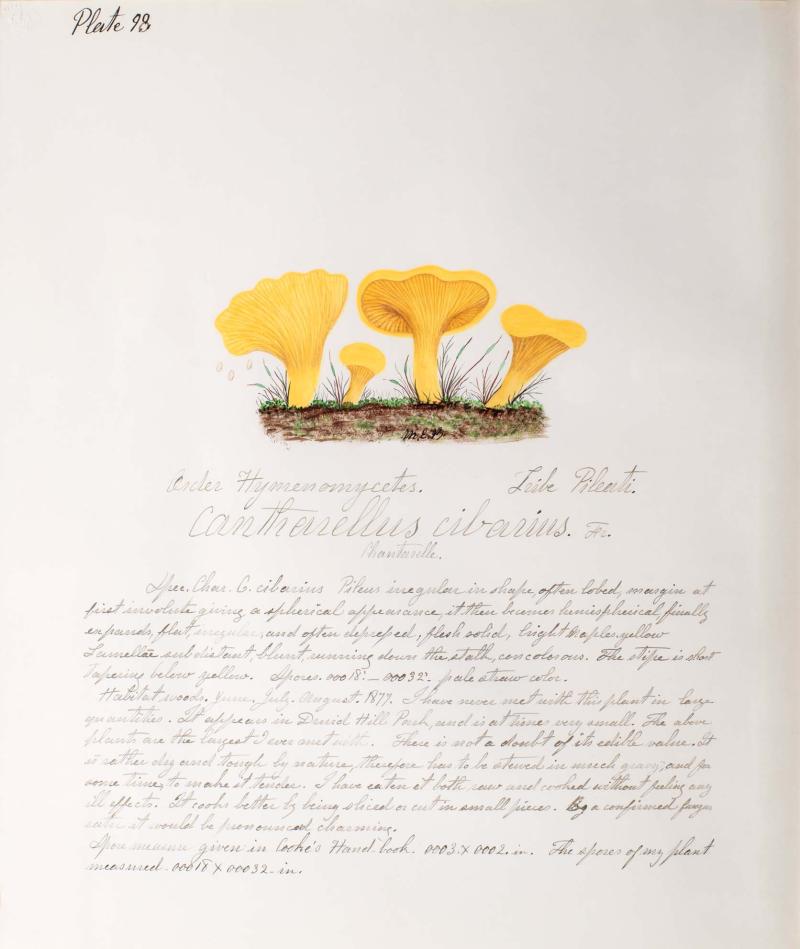 Plate 93
M.E.B.
Order Hymenomycetes. Tribe Pileati.
Cantharellus cibarius. Fr.
Chantarelle.
Spec. Char. C. cibarius Pileus irregular in shape, often lobed, margin at
first involute giving a spherical appearance, it then becomes hemispherical finally
expands, flat, irregular, and often depressed, flesh solid, bright Naples yellow
Lamellae subdistant, blunt, running down the stalk, concolorous. The stipe is short
Tapering below yellow. Spores .00018 - .00032 pale straw color.
Habitat woods. June, July. August. 1877. I have never met with this plant in large
quantities. It appears in Druid Hill Park, and is at times very small. The above
plants are the largest I ever met with. There is not a doubt of its edible value. It
is rather dry and tough by nature, therefore has to be stewed in much gravy, and for
some time, to make it tender. I have eaten it both raw and cooked without feeling any
ill effects. It cooks better by being sliced or cut in small pieces. By a confirmed fungus
eater it would be pronounced, charming.
Spore measure given in Cooke's Hand-book. .0003 X .0002. in. The spores of my plant
measured .00018 X .00032 - in.